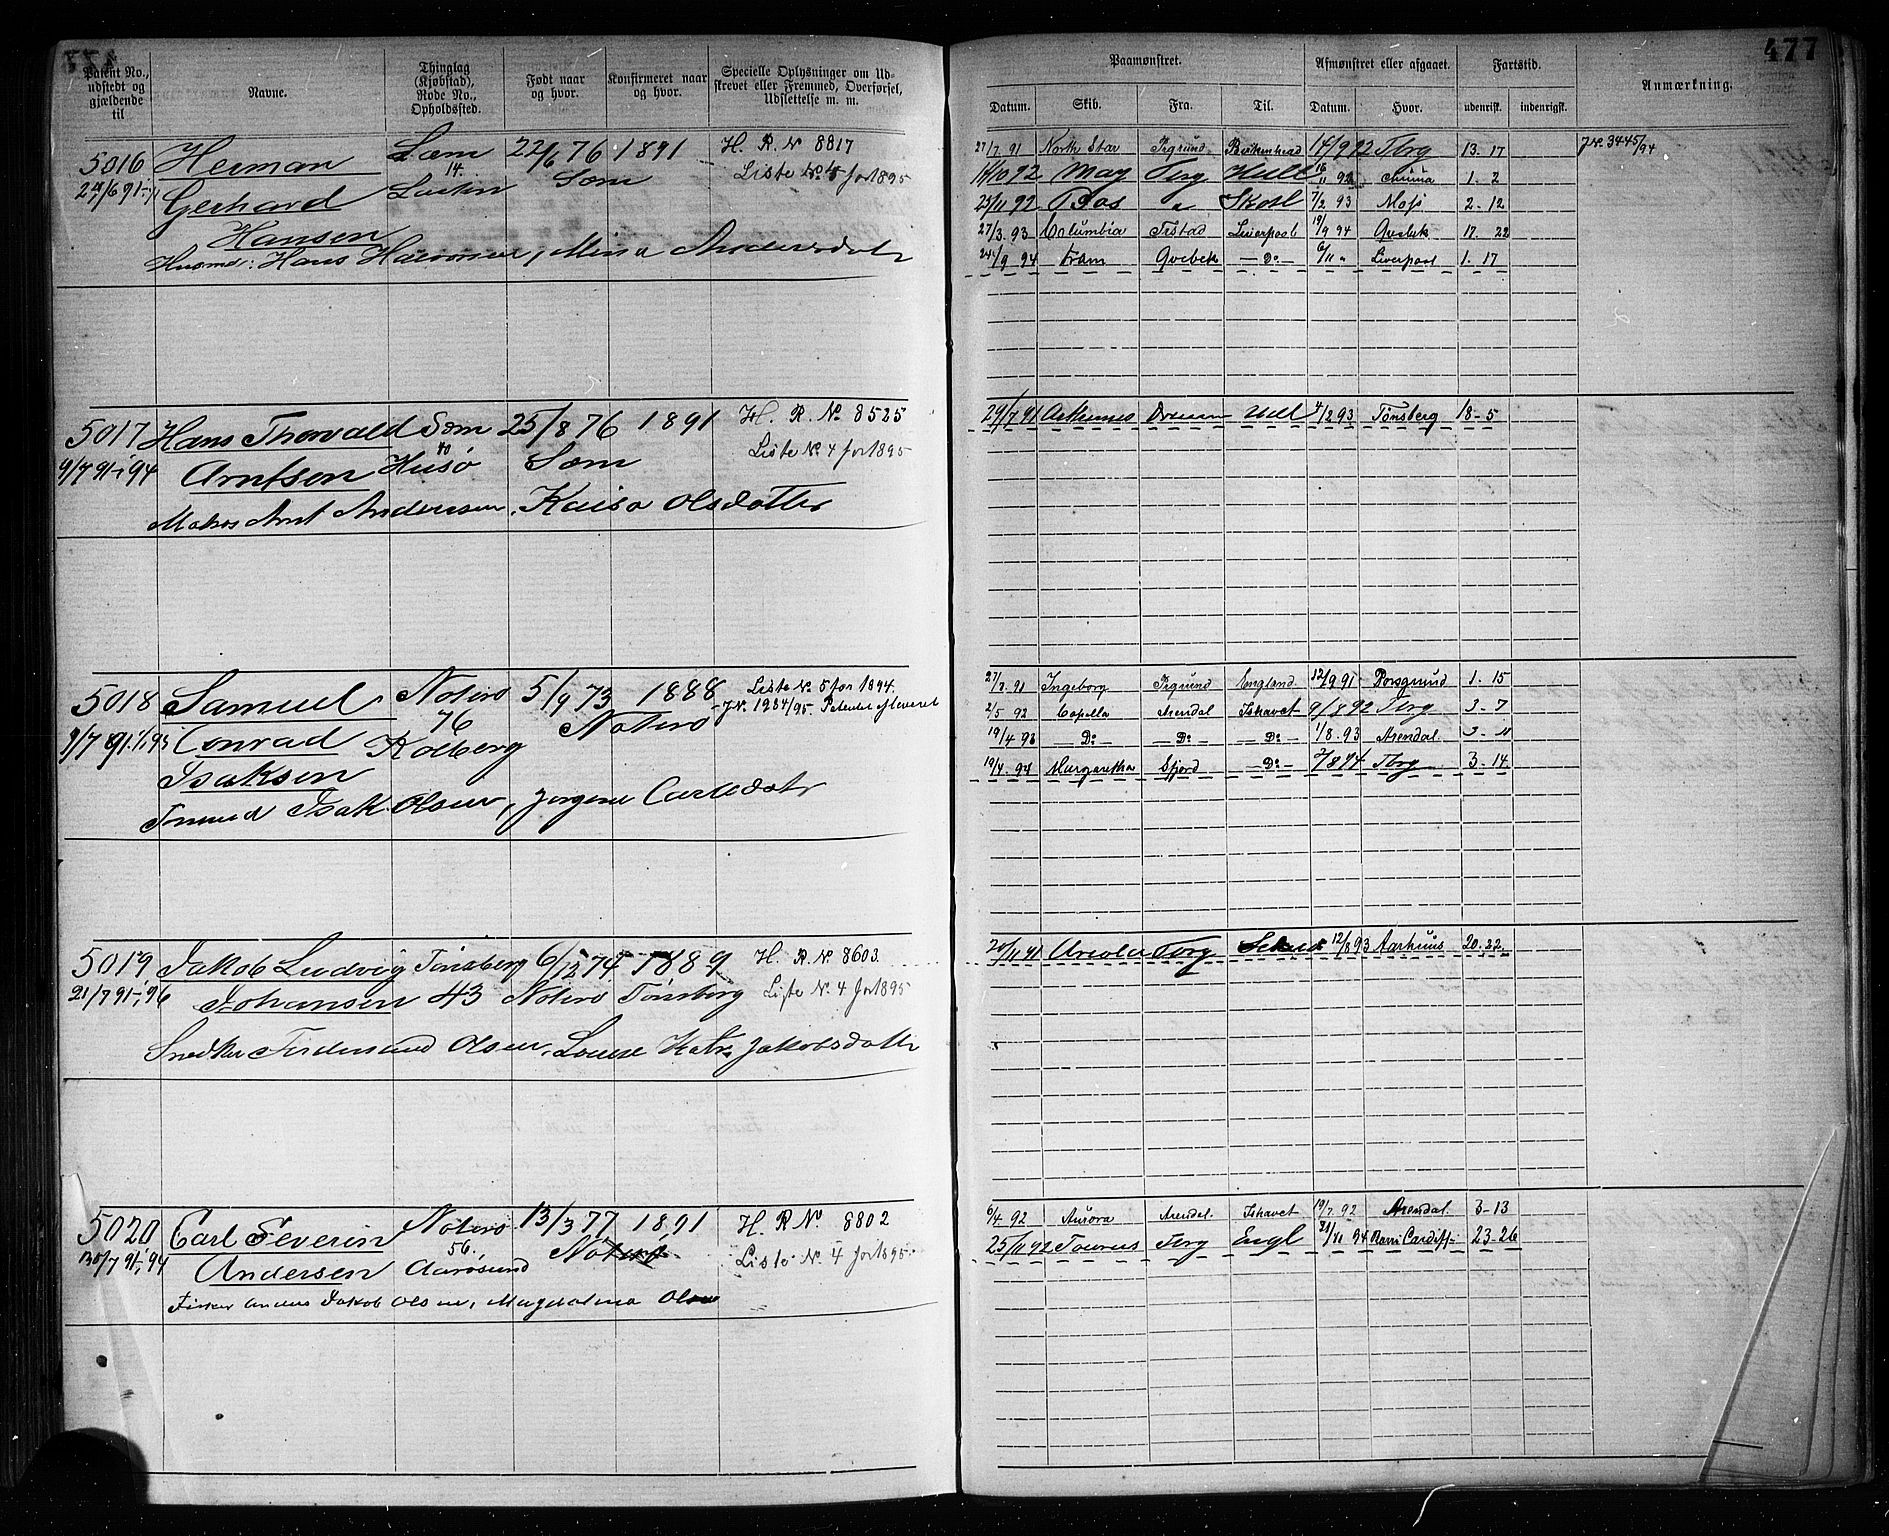 477
Patent No., udstedt og gjældende til
Navne.
Thinglag (Kjøbstad), Rode No., Opholdssted.
Født naar og hvor.
Konfirmeret naar og hvor.
Specielle Oplysninger om Udskrevet eller Fremmed, Overførsel, Udslettelse m. m.
Paamønstret.
Afmønstret eller afgaaet.
Fartstid.
Anmærkning.
Datum. Skib. Fra. Til. Datum. Hvor. udenrikst. indenrigst.
5016 Herman Sæm 22/6 76 1891 H. R. No 8817
14. Sæm Liste No. 5 for 1895
Gerhard
Hansen
Husmd: Hans , Mina Andersdatr
27/7 91 North Star Frgrund Birkenhead 14/9 92 Tbrg 13. 17 JNr. 3445/94
14/10 92 May Tbrg Hull 92 1. 2
25/11 92 " Skotl 7/2 93 Moss 2. 12
27/3 93 Columbia Frstad Liverpool 19/9 94 Qvebek 17. 22
24/9 94 Fram Qvebek Do 6/11 " Liverpool 1. 17
5017 Hans Thorvald Sæm 25/8 76 1891 H. R. No. 8525
9/7 91-1/1 94 Arntsen Husø Sæm Liste No 4 for 1895
Matros Arnt Andersen, Kaisa Olsdatter
29/7 91 4/2 93 Tønsberg 18-5
5018 Samuel Noterø 5/9 73 1888 Liste No 5 for 1894.
76 Noterø JNr. 1984/95. Patentet afleveret
9/7 91 Conrad Kolberg
Isaksen
Isak Olsen, Jørgine Carlsdatr
27/7 91 Ingeborg Frgrund England 12/9 91 Porsgrund 1. 15
2/5 92 Capella Arendal Ishavet 9/8 92 Tbrg 3. 7
19/4 93 Do Do Do 1/8. 93 Arendal 3. 11
19/4. 94 Margaretha Sfjord Do 7/8 94 Tbrg 3. 14
5019 Jakob Ludvig Tønsberg 6/12 74 1889 H. R. No. 8603.
21/7 91-1/1 96 Johansen 43 Noterø Tønsberg Liste No. 4 for 1895
Snedker Ferdinand Olsen, Louise Katr. Jakobsdatter
20/11 91 Tbrg 12/8 93 Aarhuus 20. 22
5020 Carl Severin Nøterø 13/3 77 1891 H. R No 8802
56. Nøterø
Andersen Aarøsund Liste No. 4 for 1895.
Fisker Anders Jakob Olsen, Magdalena Olsen
6/4 92 Aurora Arendal Ishavet 19/7. 92 Arendal 3-13
25/11 92 Taurus Tbrg Engl 94 Barri Cardiff 23-26